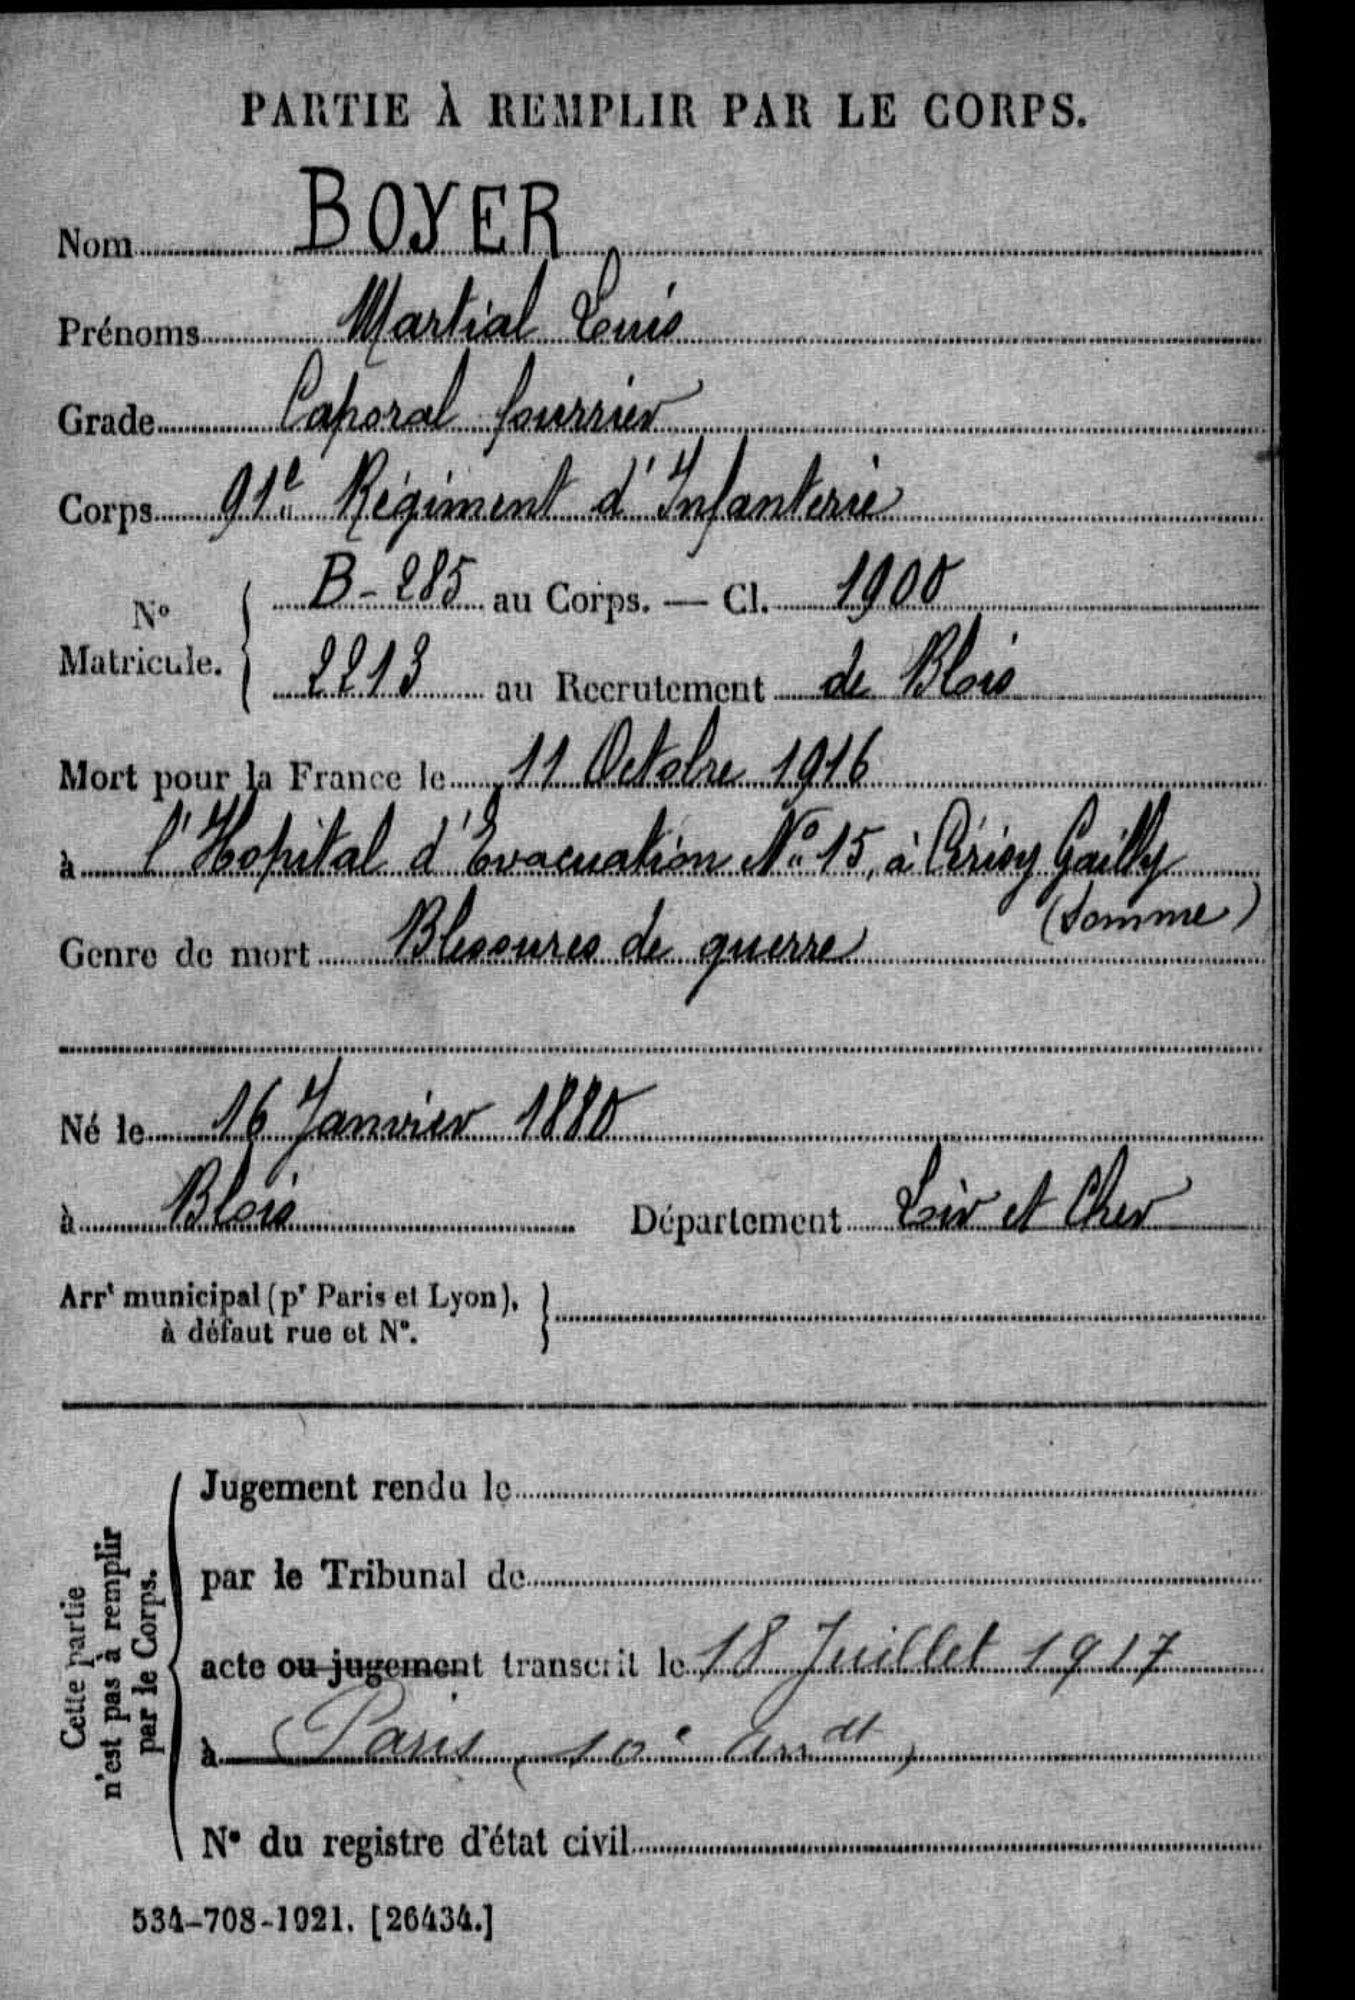 PARTIE À REMPLIR PAR LE CORPS.
Nom BOYER
Prénoms Martial Louis
Grade Caporal fourrier
Corps 91e Régiment d'Infanterie
No Matricule. { B-285 au Corps. — Cl. 1900
2213 au Recrutement de Blois
Mort pour la France le 11 Octobre 1916
à l'Hopital d'Evacuation No 15, à Cérisy Gailly
(Somme)
Genre de mort Blessures de guerre
Né le 16 Janvier 1880
à Blois Département Loir et Cher
Arrt municipal (pr Paris et Lyon), }
à défaut rue et No.
Cette partie
n'est pas à remplir
par le Corps.
Jugement rendu le
par le Tribunal de
acte ou jugement transcrit le 18 Juillet 1917
à Paris (10e Arrdt)
No du registre d'état civil
534-708-1921. [26434.]